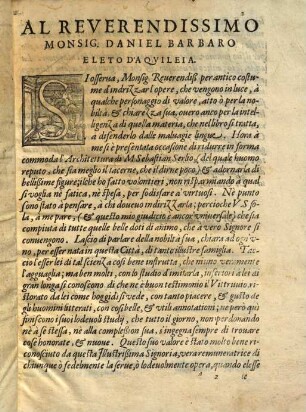 AL REVERENDISSIMO
MONSIG. DANIEL BARBARO
ELETO D'AQVILEIA.
SI osserua, Monsig. Reuerendiss. per antico costu-
me d'indrizzar l'opere, che vengono in luce, à
qualche personaggio di valore, atto ò per la no-
biltà, & chiarezza sua, ouero anco per la intelli-
genza di quella materia, che nel libro si tratta,
a difenderlo dalle maluagie lingue. Hora à
me si è presentata occasione di ridurre in forma
commoda l'Architettura di M. Sebastian Serlio (del quale huomo
reputo, che sia meglio il tacerne, che il dirne poco) & adornarla di
bellissime figure; ilche ho fatto volontieri, non risparmiando à qual
si voglia nè fatica, nè spesa, per sodisfare a virtuosi. Nè punto
sono stato à pensare, à chi doueuo indrizzarla; percioche V. S. so-
la, à me pare, (& questo mio giudicio è ancor vniuersale) che sia
compiuta di tutte quelle belle doti di animo, che à vero Signore si
conuengono. Lascio di parlare della nobiltà sua, chiara ad ogniv-
no, per esser nata in questa Città, di tanto illustre famiglia. Ta-
cio l'esser lei di tal scienza così bene instrutta, che niuno veramente
l'agguaglia; ma ben molti, con lo studio d'imitarla, inferiori à lei di
gran lunga si conoscono. di che ne è buon testimonio il Vitruuio ri-
storato da lei come hoggidì si vede, con tanto piacere, & gusto de
gli huomini litterati, con così belle, & vtili annotationi; ne però quì
finiscono i suoi lodeuoli studij, che tutto il giorno, non perdonando
nè a se stessa, nè alla complession sua, s'ingegna sempre di trouare
cose honorate, & nuoue. Questo suo valore è stato molto bene ri-
conosciuto da questa Illustrissima Signoria, vera remuneratrice di
chiunque ò fedelmente la serue, ò lodeuolmente opera, quando elesse
2 le